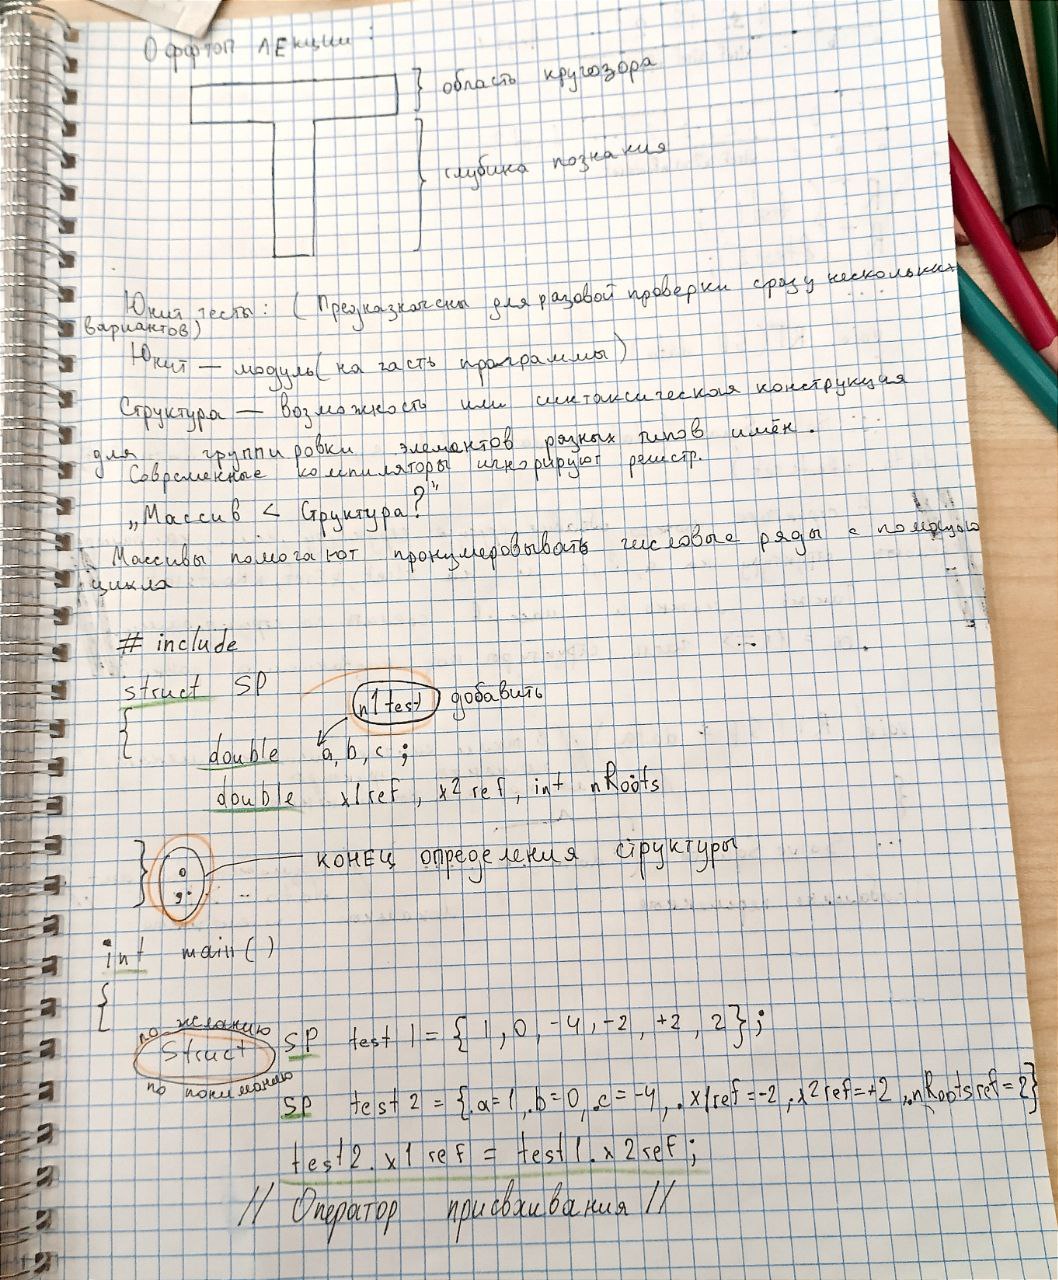 Оффтоп лекции:
область кругозора
глубина познания
Юнит тесты: (Предназначены для разовой проверки сразу нескольких
вариантов)
Юнит — модуль (на часть программы)
Структура — возможность или синтаксическая конструкция
для группировки элементов разных типов имён.
Современные компиляторы игнорируют регистр.
„Массив < Структура?"
Массивы помогают пронумеровывать числовые ряды с помощью
цикла
# include
struct SP
n1 test добавить
{
double a, b, c ;
double x1ref, x2 ref, int nRoots
} ; — конец определения структуры
int main ( )
{
по желанию
Struct SP test 1 = { 1, 0, -4, -2, +2, 2 } ;
по пониманию
SP test 2 = {.a=1, .b=0, .c=-4, .x1ref=-2, .x2ref=+2, .nRootsref=2}
test2. x1 ref = test1. x2ref ;
// Оператор присваивания //